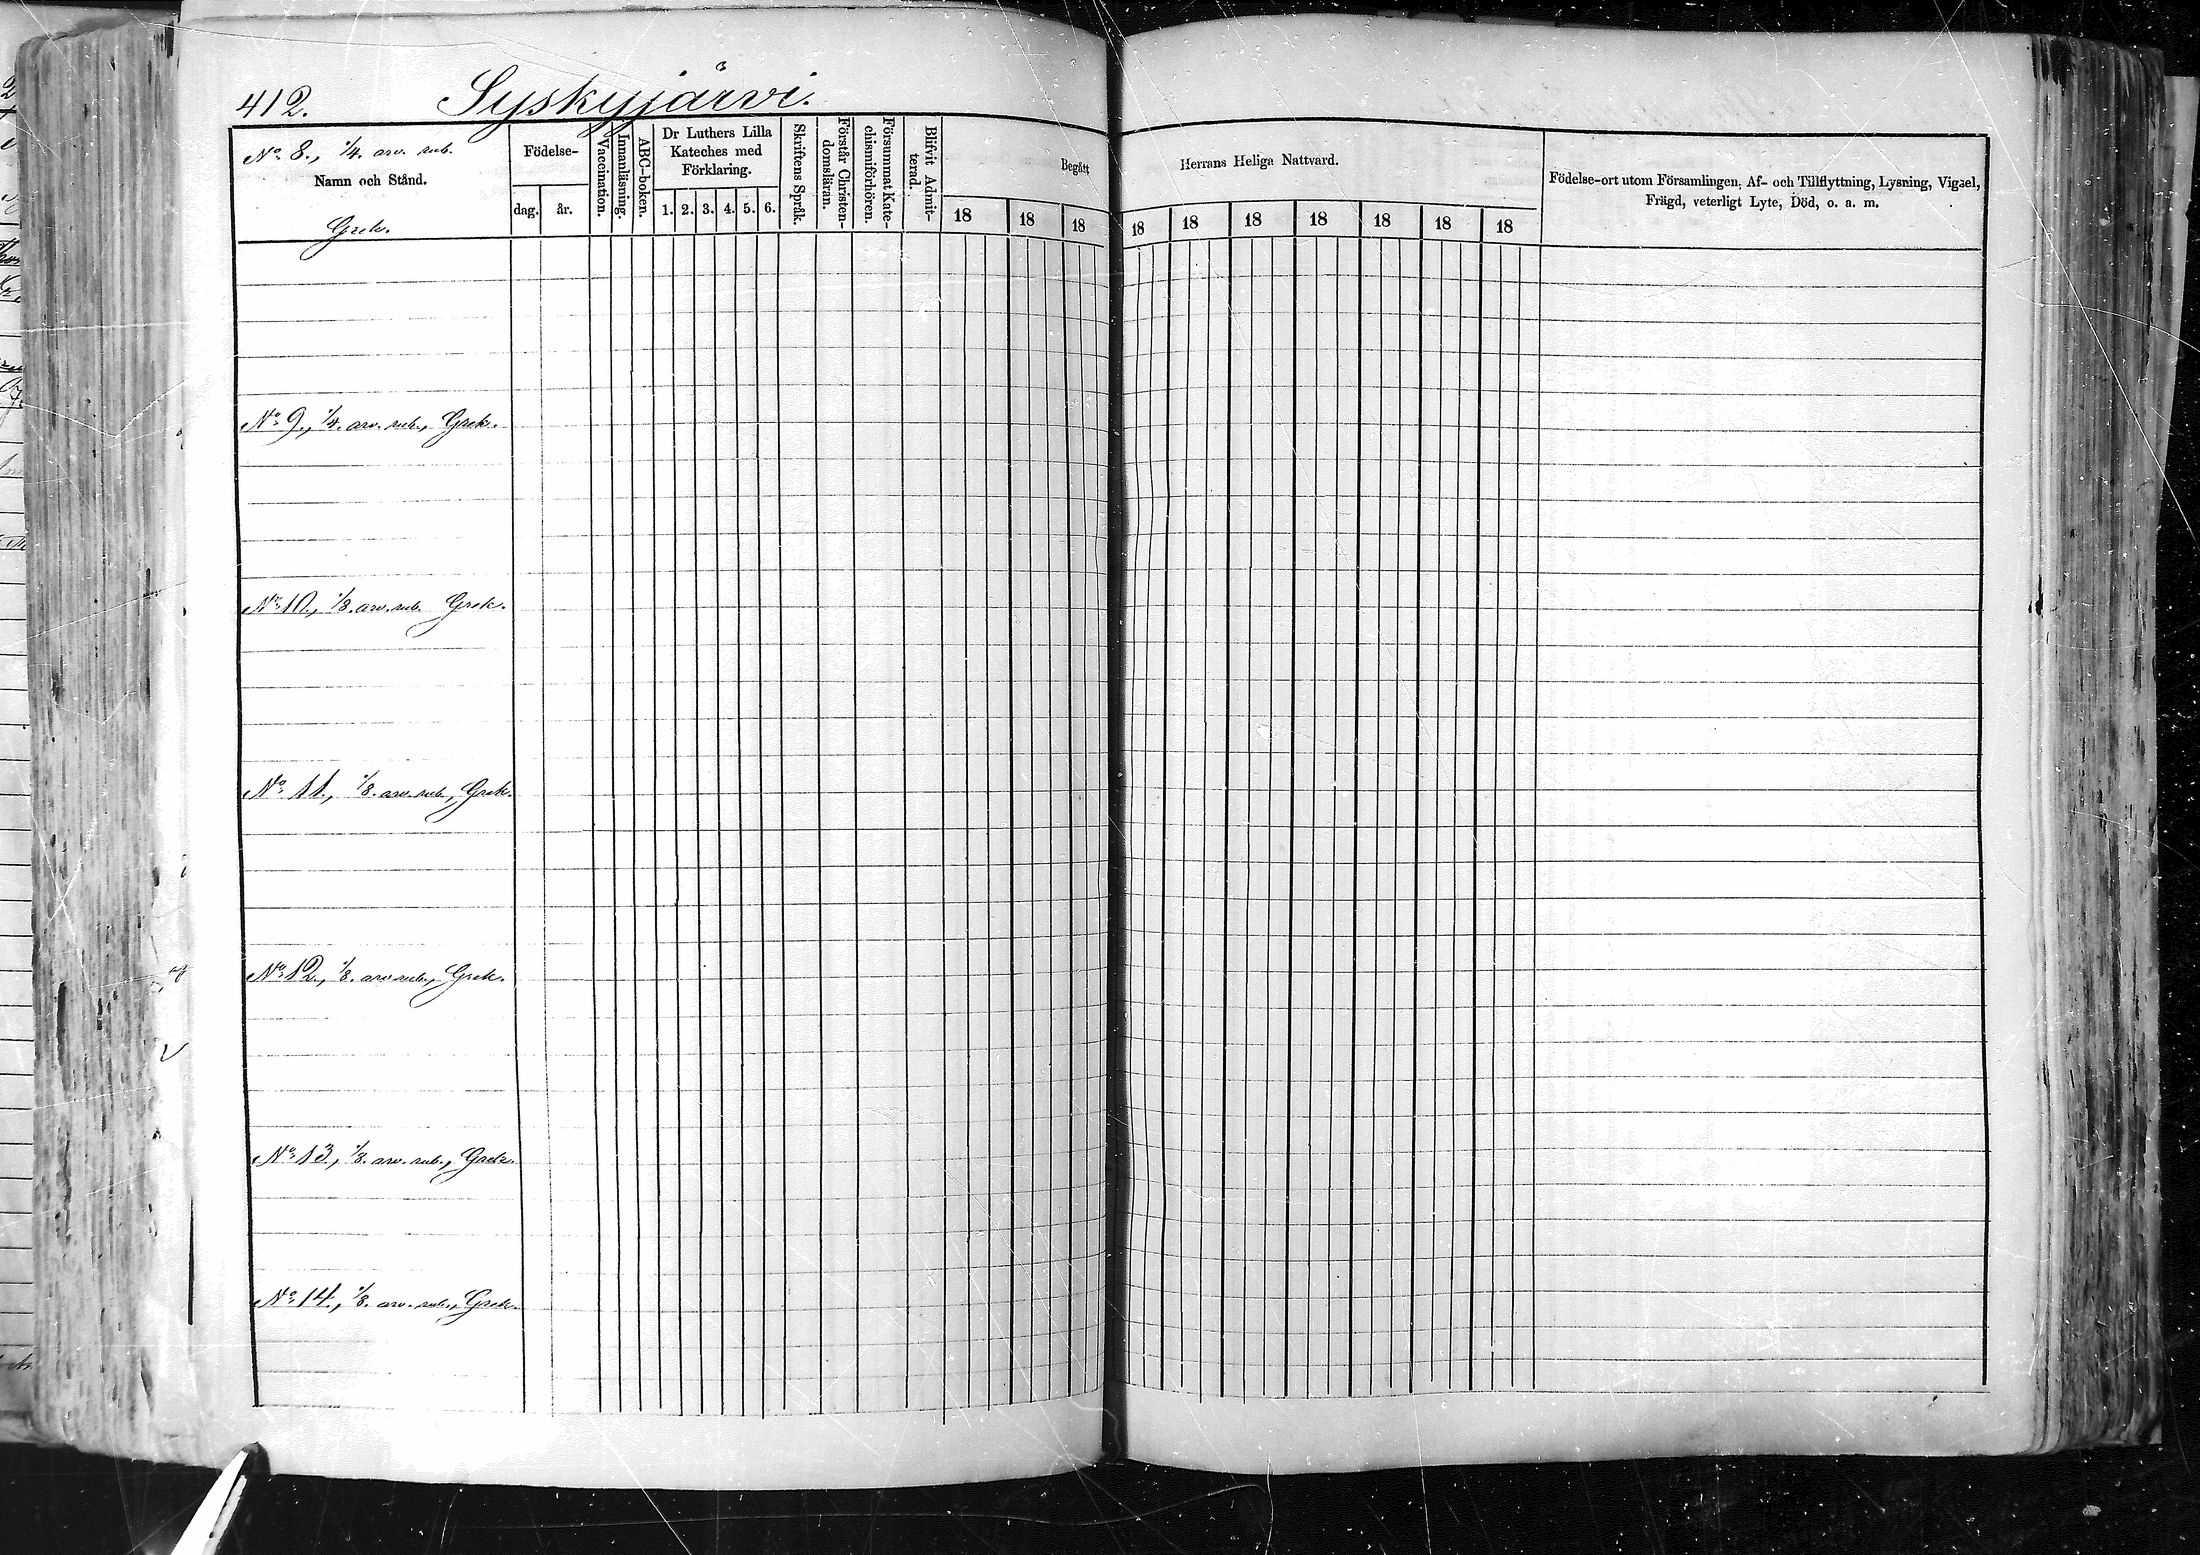 412. Syskyjärvi.
No 8., 1/4. arv. rub.
Namn och Stånd.
Grek.
Födelse-
dag. år.
Vaccination.
Innanläsning.
ABC-boken.
Dr Luthers Lilla
Kateches med
Förklaring.
1. 2. 3. 4. 5. 6.
Skriftens Språk.
Förstår Christen-
domsläran.
Försummat Kate-
chismiförhören.
Blifvit Admit-
terad.
Begått Herrans Heliga Nattvard.
18 18 18 18 18 18 18 18 18 18
Födelse-ort utom Församlingen, Af- och Tillflyttning, Lysning, Vigsel,
Frägd, veterligt Lyte, Död, o. a. m.
No 9., 1/4. arv. rub., Grek.
No 10., 1/8. arv. rub. Grek.
No 11., 1/8. arv. rub., Grek.
No 12., 1/8. arv. rub., Grek.
No 13., 1/8. arv. rub., Grek.
No 14., 1/8. arv. rub., Grek.